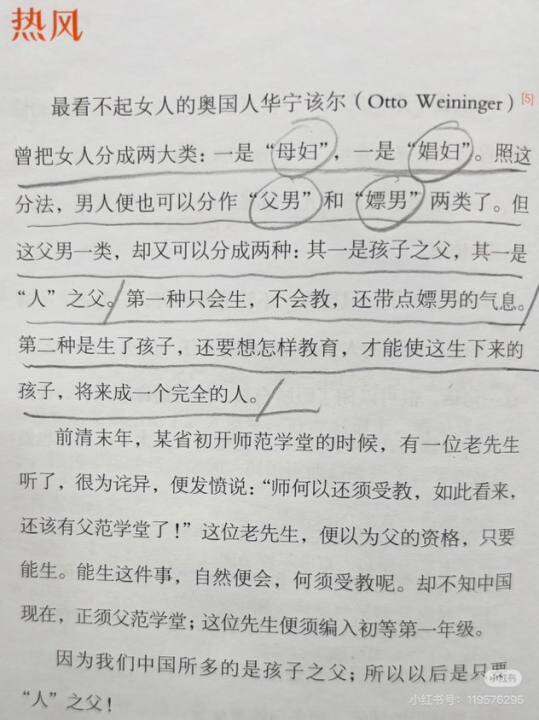 热风
最看不起女人的奥国人华宁该尔（Otto Weininger）[5]
曾把女人分成两大类：一是“母妇”，一是“娼妇”。照这
分法，男人便也可以分作“父男”和“嫖男”两类了。但
这父男一类，却又可以分成两种：其一是孩子之父，其一是
“人”之父。第一种只会生，不会教，还带点嫖男的气息。
第二种是生了孩子，还要想怎样教育，才能使这生下来的
孩子，将来成一个完全的人。
前清末年，某省初开师范学堂的时候，有一位老先生
听了，很为诧异，便发愤说：“师何以还须受教，如此看来，
还该有父范学堂了！”这位老先生，便以为父的资格，只要
能生。能生这件事，自然便会，何须受教呢。却不知中国
现在，正须父范学堂；这位先生便须编入初等第一年级。
因为我们中国所多的是孩子之父；所以以后是只要
“人”之父！
小红书
小红书号：119576295